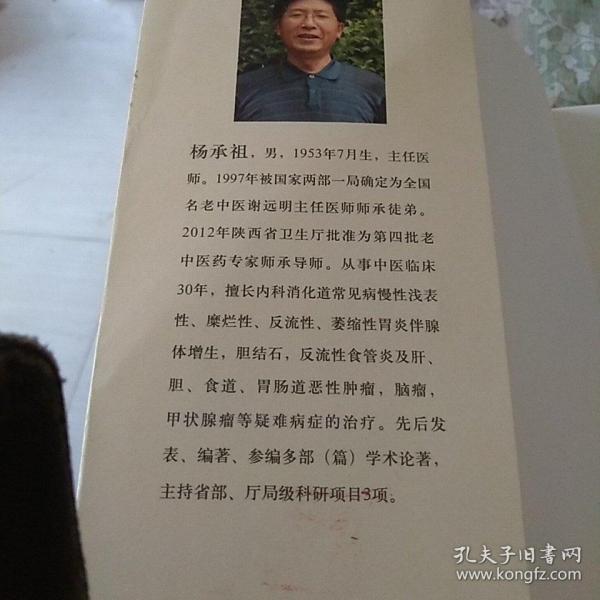 杨承祖，男，1953年7月生，主任医
师。1997年被国家两部一局确定为全国
名老中医谢远明主任医师师承徒弟。
2012年陕西省卫生厅批准为第四批老
中医药专家师承导师。从事中医临床
30年，擅长内科消化道常见病慢性浅表
性、糜烂性、反流性、萎缩性胃炎伴腺
体增生，胆结石，反流性食管炎及肝、
胆、食道、胃肠道恶性肿瘤，脑瘤，
甲状腺瘤等疑难病症的治疗。先后发
表、编著、参编多部（篇）学术论著，
主持省部、厅局级科研项目3项。
孔夫子旧书网
www.kongfz.com